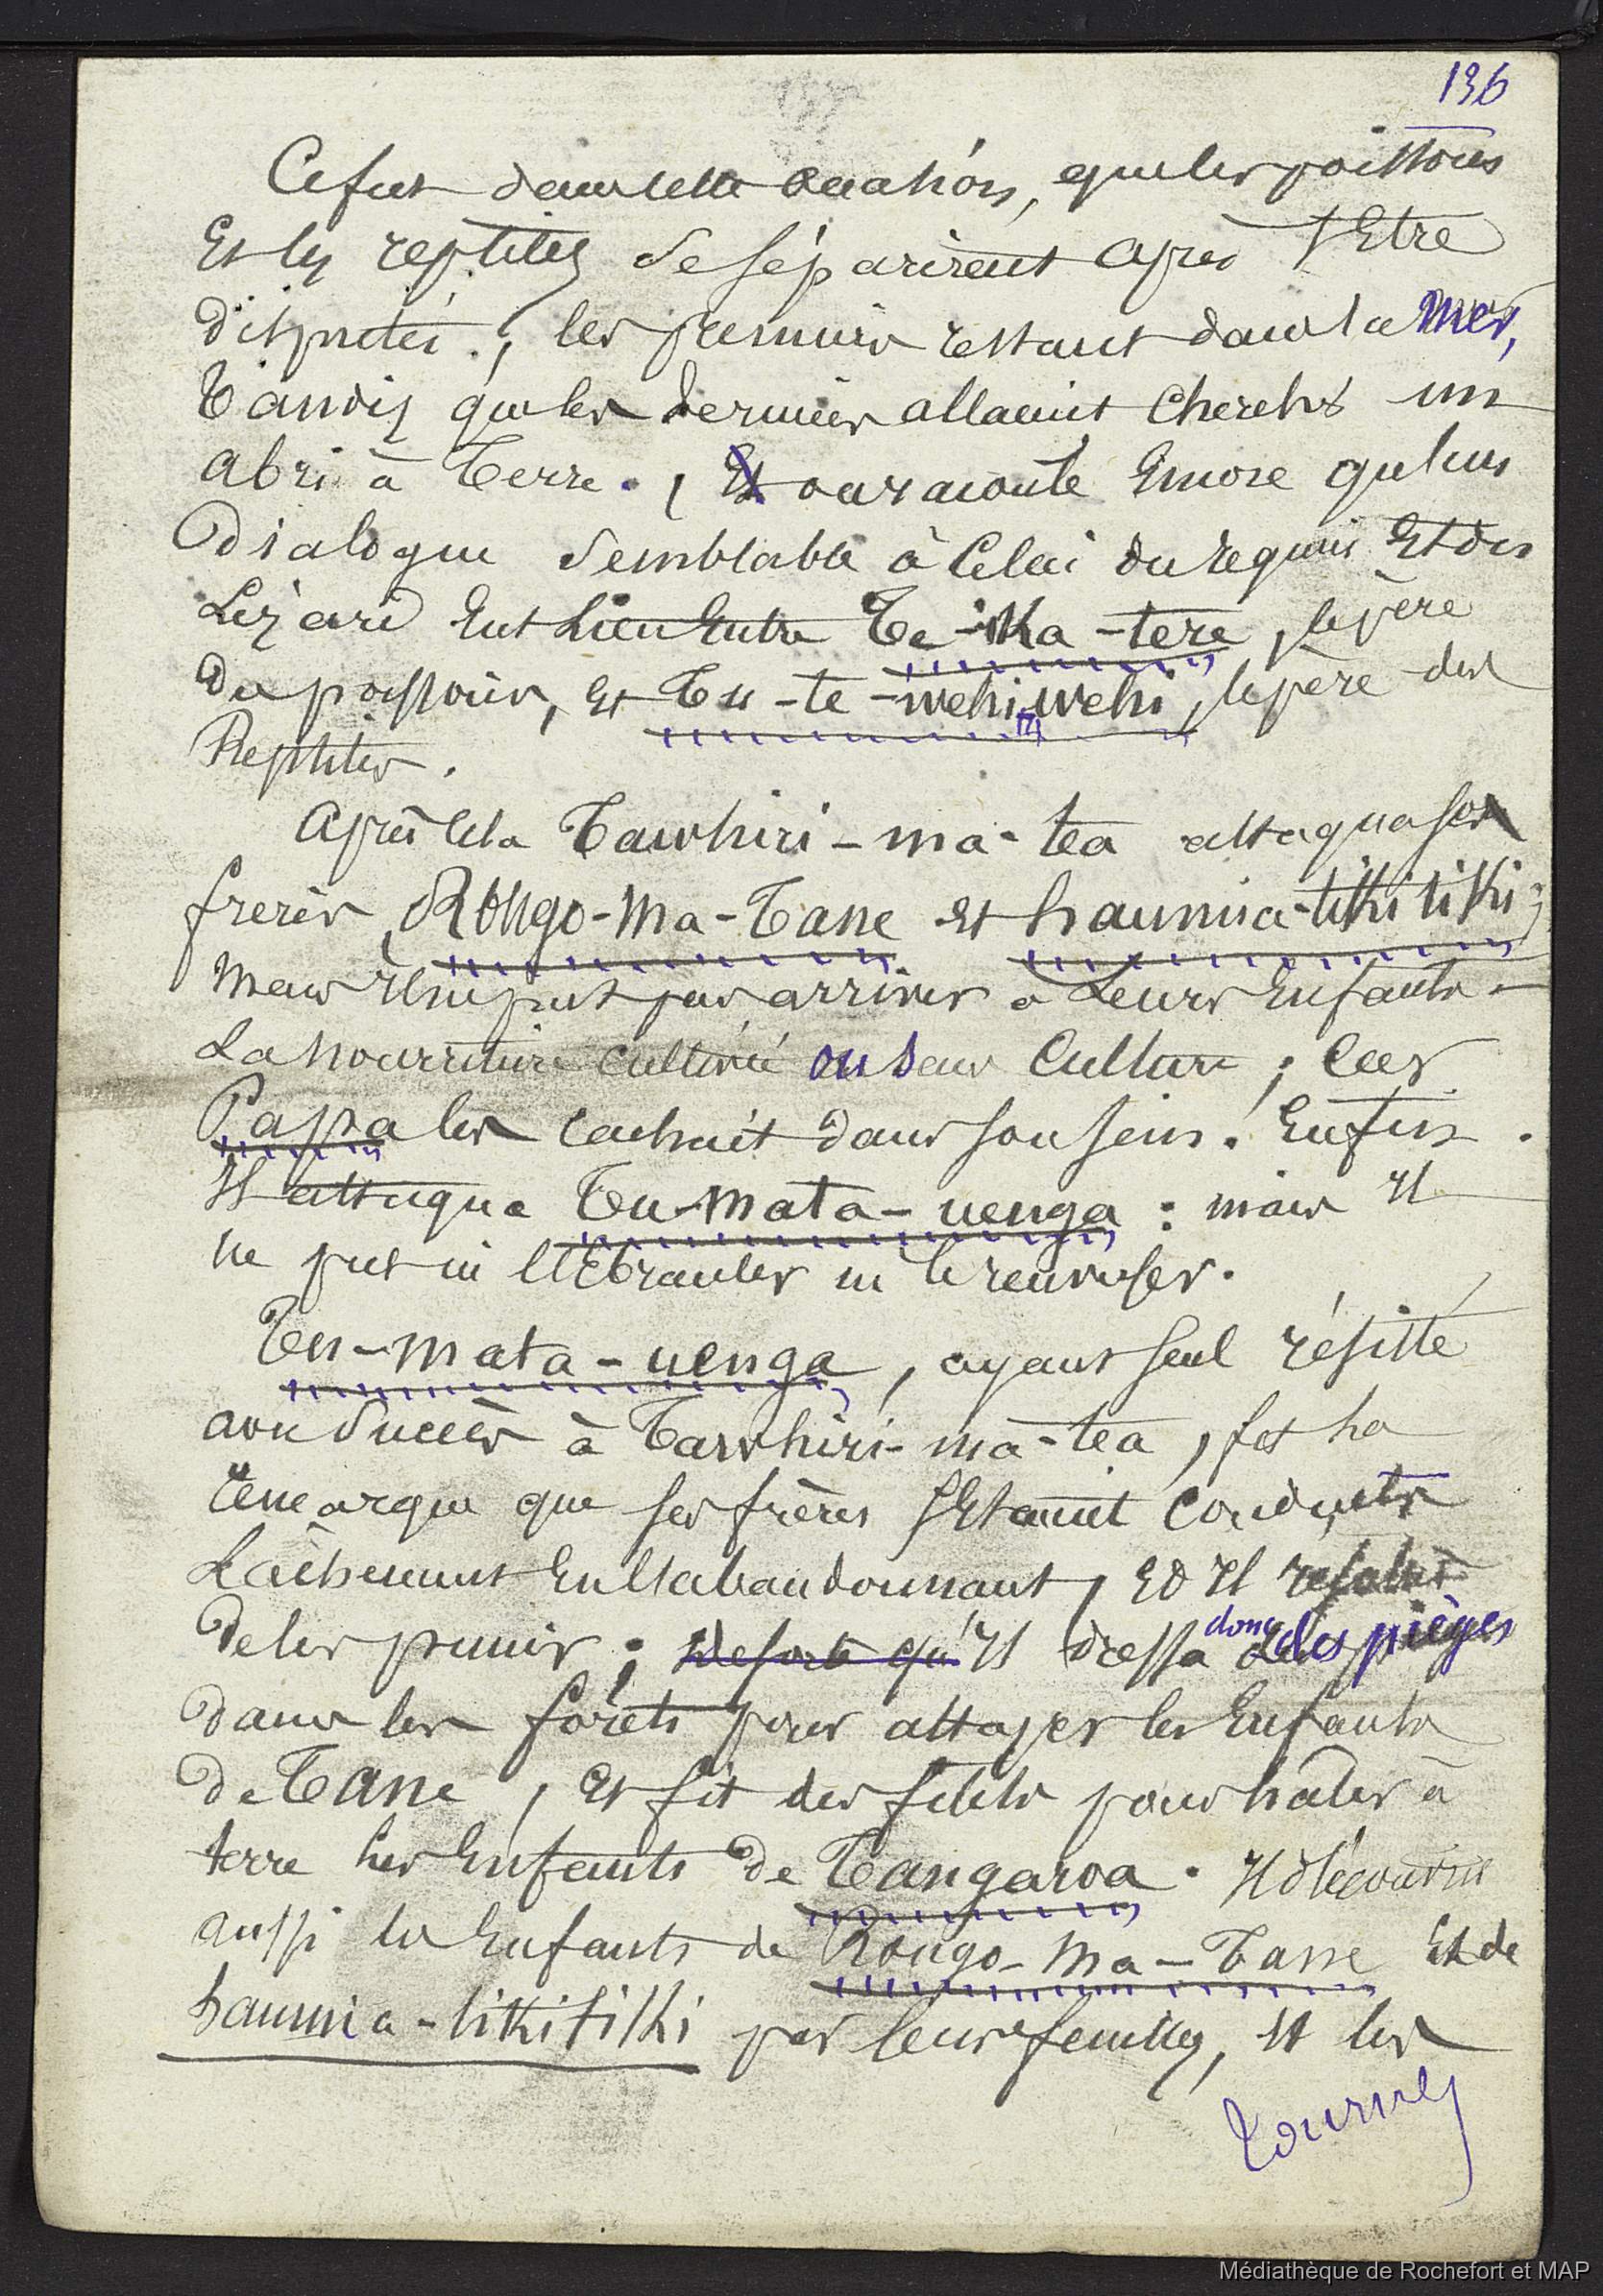 136
Ce fut dans cette occasion, que les poissons
Et les reptiles se séparèrent après s'Etre
disputés ; les premiers restant dans la Mer,
Tandis que les derniers allaient chercher un
abri à Terre. , on raconte Encore qu'un
Dialogue semblable à Celui du requin Et du
Lézard Eut lieu Entre Te-ika-tere, le père
Des poissons, et Tu-te-wehiwehi, le père des
Reptiles.
Après cela Tawhiri-ma-tea attaqua ses
freres, Rongo-Ma-Tane et haumia-tikitiki ;
Mais Il ne put pas arriver à Leurs Enfants -
La nourriture cultivée ou sans Culture ; Car
Papa les cachait dans son sein. Enfin
Il attaqua Tu-Mata-uenga : mais Il
ne put ni l'Ebranler ni le renverser.
Tu-mata-uenga, ayant seul résisté
avec succès à Tawhiri-ma-tea, fit la
remarque que ses frères s'Etaient conduits
Lâchement En l'abandonnant, Et Il résolut
De les punir ; De sorte qu'Il dressa donc des pièges
dans les forêts pour attaper les Enfants
De Tane, Et fit des filets pour haler à
terre les Enfants de Tangaroa. Il découvrit
aussi les Enfants de Rongo-Ma-Tane Et de
haumia-tikitiki par leurs feuilles, Et les
Tournez
Médiathèque de Rochefort et MAP